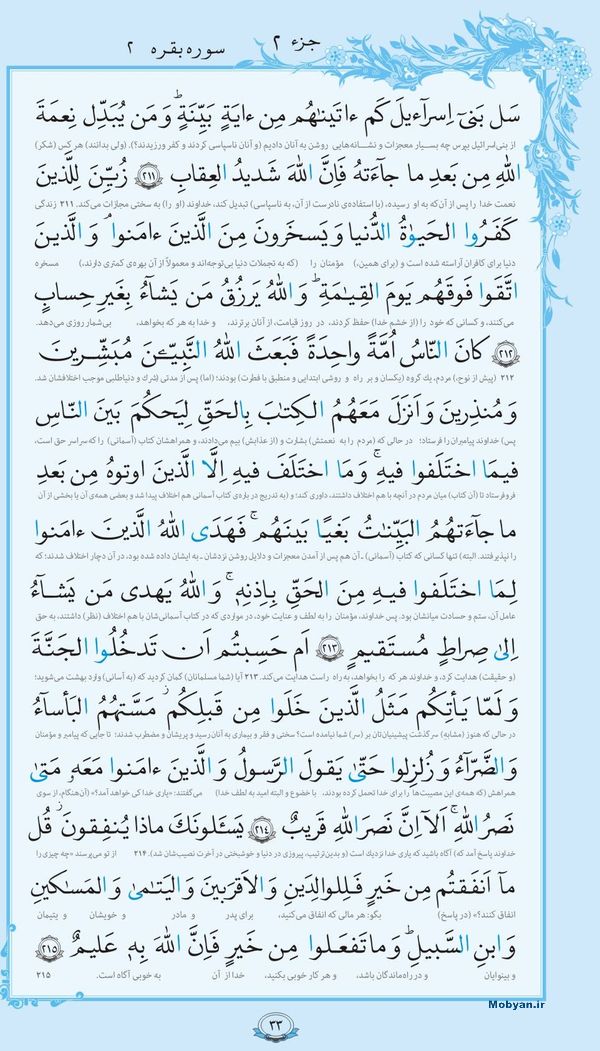 جزء ۲
سوره بقره ۲
سَل بَنىٓ اِسرآءيلَ كَم ءاتَينٰهُم مِن ءايَةٍ بَيِّنَةٍ ۗ وَ مَن يُبَدِّل نِعمَةَ
از بنی‌اسرائیل بپرس چه بسیار معجزات و نشانه‌هایی روشن به آنان دادیم (و آنان ناسپاسی کردند و کفر ورزیدند؟). (ولی بدانند) هر کس (شکر)
اللهِ مِن بَعدِ ما جآءَتهُ فَاِنَّ اللهَ شَديدُ العِقابِ ﴿۲۱۱﴾ زُيِّنَ لِلَّذينَ
نعمت خدا را پس از آن‌که به او رسیده، (با استفاده‌ی نادرست از آن، به ناسپاسی) تبدیل کند، خداوند (او را) به سختی مجازات می‌کند. ۲۱۱ زندگی
كَفَرُوا الحَيوٰةُ الدُّنيا وَ يَسخَرونَ مِنَ الَّذينَ ءامَنوا ۘ وَ الَّذينَ
دنیا برای کافران آراسته شده است و (برای همین،) مؤمنان را (که به تجملات دنیا بی‌توجه‌اند و معمولاً از آن بهره‌ی کمتری دارند،) مسخره
اتَّقَوا فَوقَهُم يَومَ القِيٰمَةِ ۗ وَ اللهُ يَرزُقُ مَن يَشآءُ بِغَيرِ حِسابٍ
می‌کنند، و کسانی که خود را (از خشم خدا) حفظ کردند، در روز قیامت، از آنان برترند، و خدا به هر که بخواهد، بی‌شمار روزی می‌دهد.
﴿۲۱۲﴾ كانَ النّاسُ اُمَّةً واحِدَةً فَبَعَثَ اللهُ النَّبِيّٖنَ مُبَشِّرينَ
۲۱۲ (پیش از نوح،) مردم، یک گروه (یکسان و بر راه و روشی ابتدایی و منطبق با فطرت) بودند؛ (اما) پس از مدتی (شرک و دنیاطلبی موجب اختلافشان شد.
وَ مُنذِرينَ وَ اَنزَلَ مَعَهُمُ الكِتٰبَ بِالحَقِّ لِيَحكُمَ بَينَ النّاسِ
پس) خداوند پیامبران را فرستاد؛ در حالی که (مردم را به نعمتش) بشارت و (از عذابش) بیم می‌دادند، و همراهشان کتاب (آسمانی) را که سراسر حق است،
فيمَا اختَلَفوا فيهِ ۚ وَ مَا اختَلَفَ فيهِ اِلَّا الَّذينَ اوتوهُ مِن بَعدِ
فروفرستاد تا (آن کتاب) میان مردم در آنچه با هم اختلاف داشتند، داوری کند؛ و (به تدریج در باره‌ی کتاب آسمانی هم اختلاف پیدا شد و بعضی همه‌ی آن یا بخشی از آن
ما جآءَتهُمُ البَيِّنٰتُ بَغيًا بَينَهُم ۖ فَهَدَى اللهُ الَّذينَ ءامَنوا
را نپذیرفتند. البته) تنها کسانی که کتاب (آسمانی) ـ آن هم پس از آمدن معجزات و دلایل روشن نزدشان ـ به ایشان داده شده بود، در آن دچار اختلاف شدند؛ که
لِمَا اختَلَفوا فيهِ مِنَ الحَقِّ بِاِذنِهٖ ۗ وَ اللهُ يَهدى مَن يَشآءُ
عامل آن، ستم و حسادت میانشان بود. پس خداوند، مؤمنان را به لطف و عنایت خود، در مواردی که در کتاب آسمانی‌شان با هم اختلاف (نظر) داشتند، به حق
اِلىٰ صِراطٍ مُستَقيمٍ ﴿۲۱۳﴾ اَم حَسِبتُم اَن تَدخُلُوا الجَنَّةَ
(و حقیقت) هدایت کرد، و خداوند هر که را بخواهد، به راه راست هدایت می‌کند. ۲۱۳ آیا (شما مسلمانان) گمان کردید که (به آسانی) وارد بهشت می‌شوید؛
وَ لَمّا يَأتِكُم مَثَلُ الَّذينَ خَلَوا مِن قَبلِكُم ۖ مَسَّتهُمُ البَأسآءُ
در حالی که هنوز (مشابه) سرگذشت پیشینیان‌تان بر (سر) شما نیامده است؟ سختی و فقر و بیماری به آنان رسید و پریشان و مضطرب شدند؛ تا جایی که پیامبر و مؤمنان
وَ الضَّرّآءُ وَ زُلزِلوا حَتّىٰ يَقولَ الرَّسولُ وَ الَّذينَ ءامَنوا مَعَهٗ مَتىٰ
همراهش (که همه‌ی این مصیبت‌ها را برای خدا تحمل کرده بودند، با خضوع و البته امید به لطف خدا) می‌گفتند: «یاری خدا کی خواهد آمد؟» (آن‌هنگام، از سوی
نَصرُ اللهِ ۗ اَلآ اِنَّ نَصرَ اللهِ قَريبٌ ﴿۲۱۴﴾ يَسـَٔلونَكَ ماذا يُنفِقونَ ۖ قُل
خداوند پاسخ آمد که) آگاه باشید که یاری خدا نزدیک است (و بدین‌ترتیب، پیروزی در دنیا و خوشبختی در آخرت نصیب‌شان شد). ۲۱۴ از تو می‌پرسند «چه چیزی را
مآ اَنفَقتُم مِن خَيرٍ فَلِلوالِدَينِ وَ الاَقرَبينَ وَ اليَتامىٰ وَ المَساكينِ
انفاق کنند؟» (در پاسخ) بگو: هر مالی که انفاق می‌کنید، برای پدر و مادر و خویشان و یتیمان
وَ ابنِ السَّبيلِ ۗ وَ ما تَفعَلوا مِن خَيرٍ فَاِنَّ اللهَ بِهٖ عَليمٌ ﴿۲۱۵﴾
و بینوایان و در راه‌ماندگان باشد، و هر کار خوبی بکنید، خدا از آن به خوبی آگاه است. ۲۱۵
Mobyan.ir
۳۳